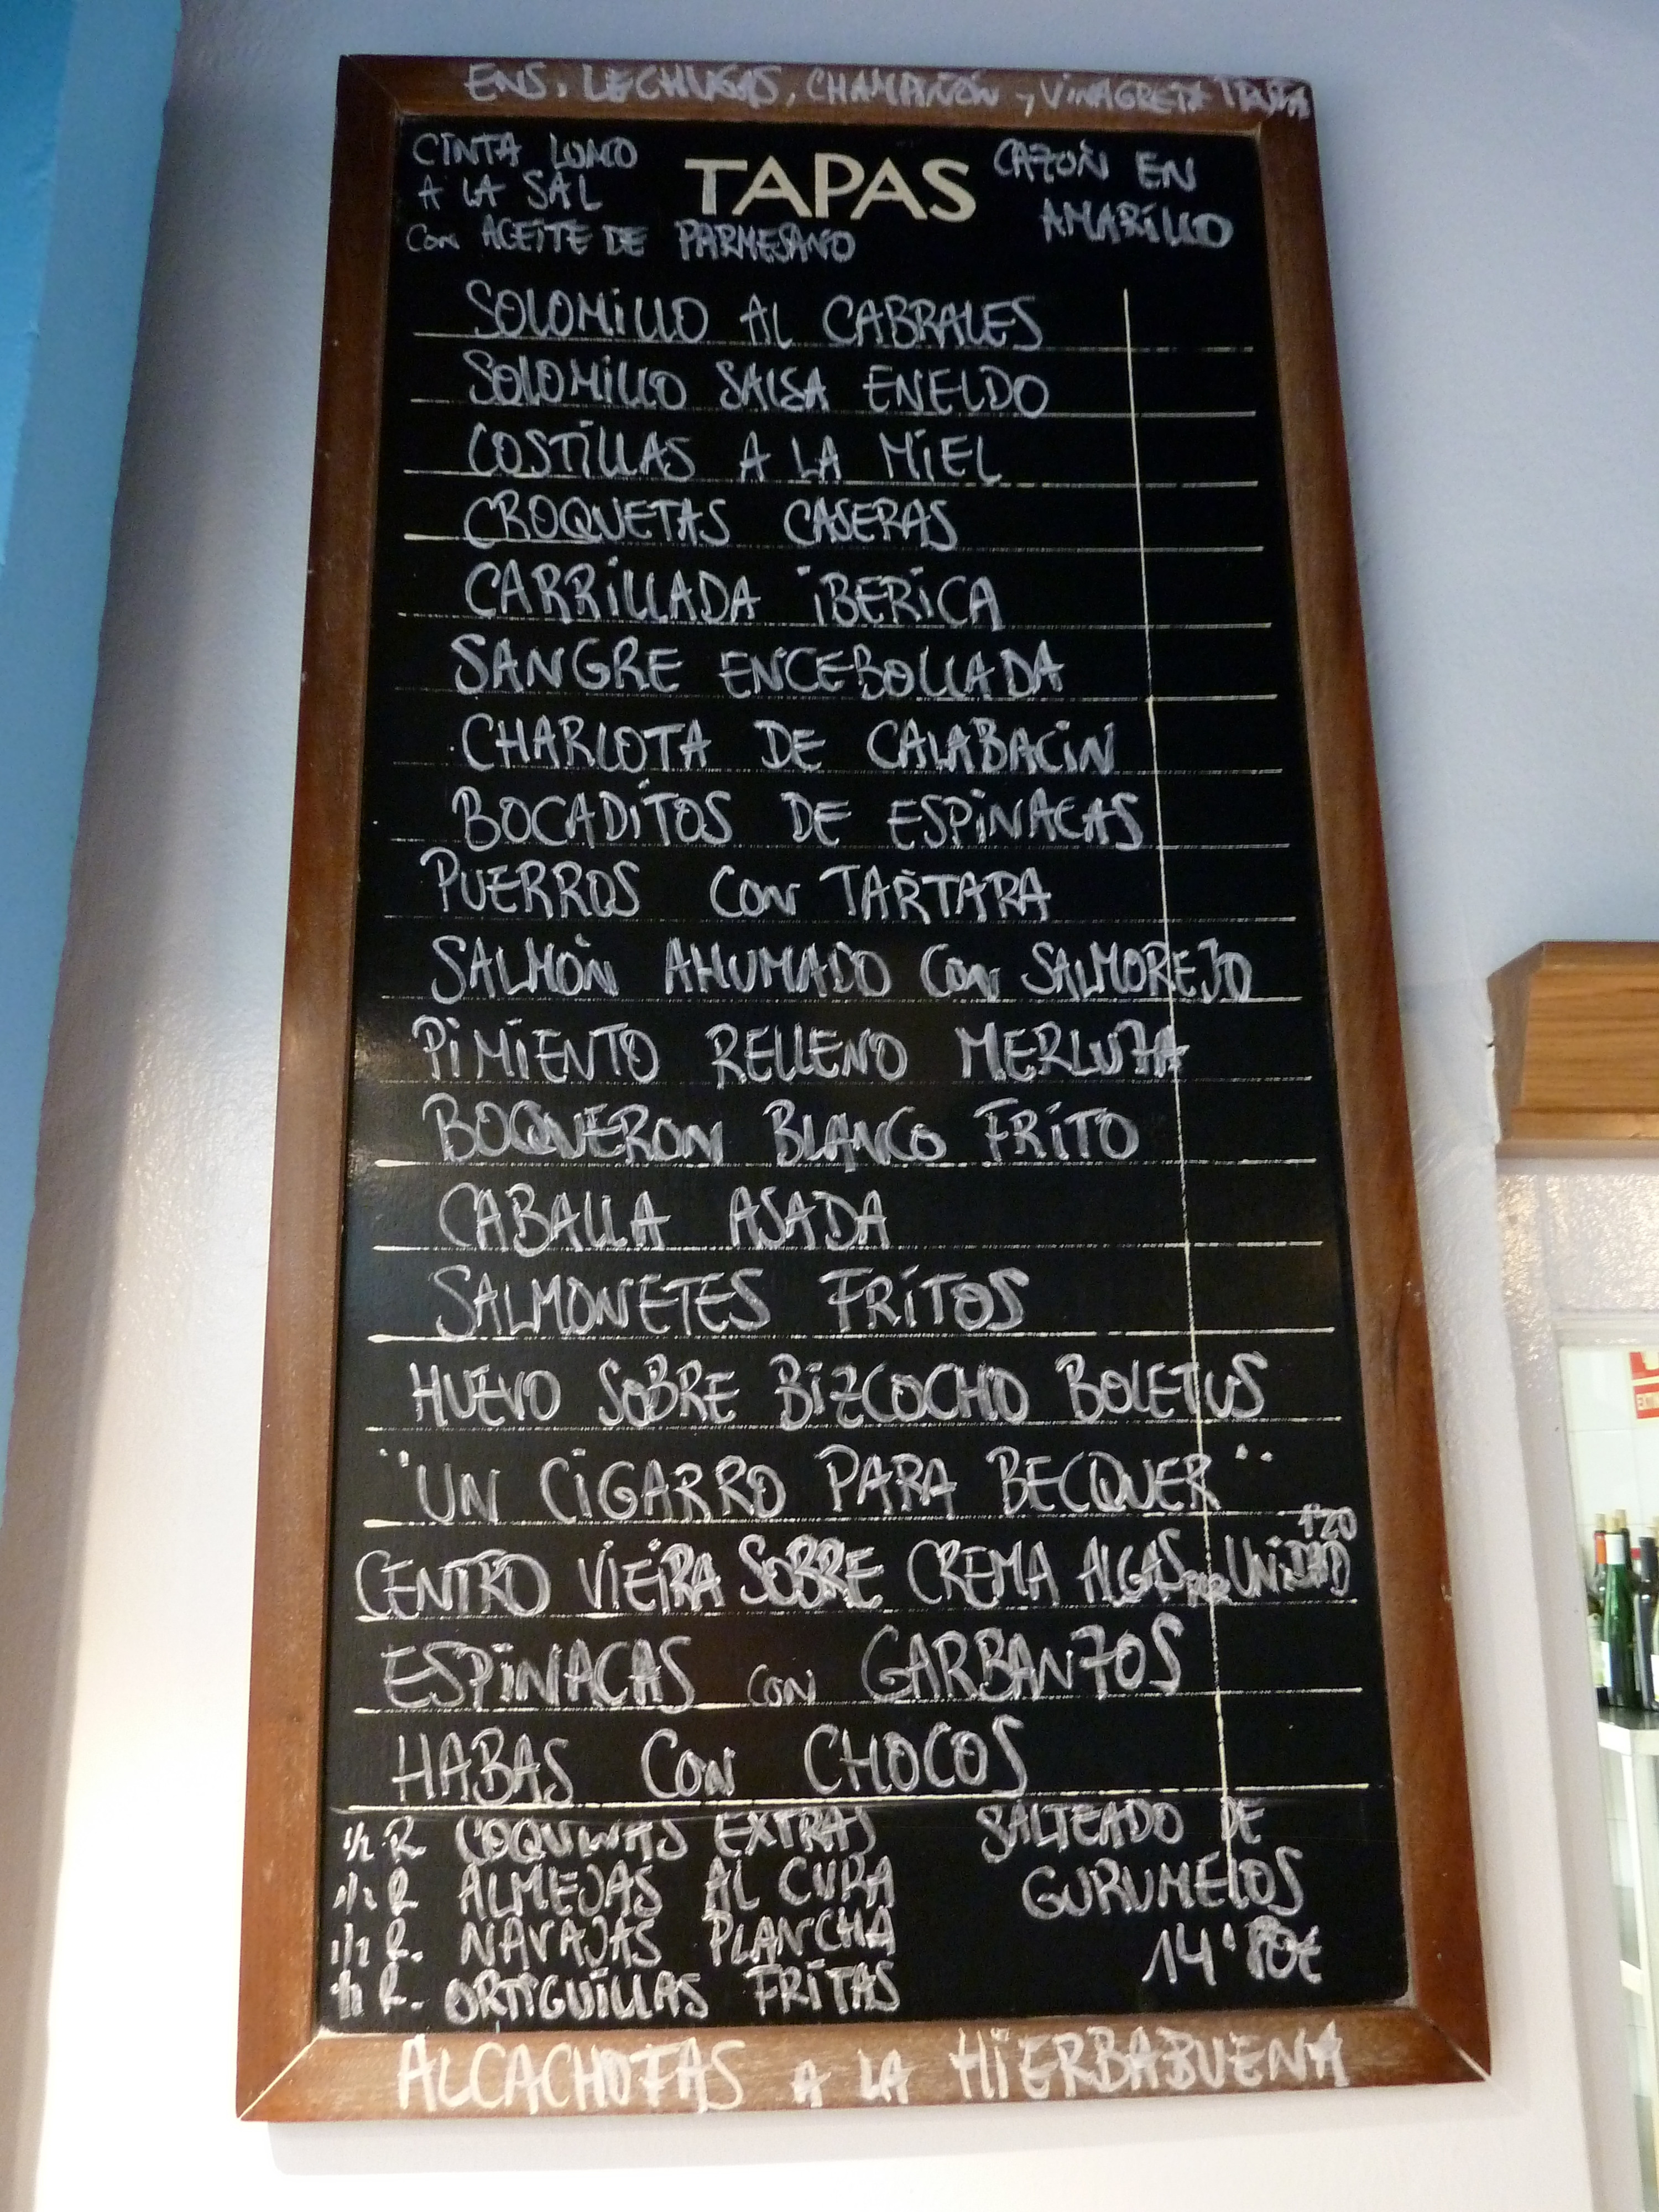 ENS. LECHUGAS, CHAMPIÑÓN Y VINAGRETA TRUFA
CINTA LOMO
A LA SAL
CON ACEITE DE PARMESANO
TAPAS
CAZÓN EN
AMARILLO
SOLOMILLO AL CABRALES
SOLOMILLO SALSA ENELDO
COSTILLAS A LA MIEL
CROQUETAS CASERAS
CARRILLADA IBERICA
SANGRE ENCEBOLLADA
CHARLOTA DE CALABACIN
BOCADITOS DE ESPINACAS
PUERROS CON TARTARA
SALMÓN AHUMADO CON SALMOREJO
PIMIENTO RELLENO MERLUZA
BOQUERON BLANCO FRITO
CABALLA ASADA
SALMONETES FRITOS
HUEVO SOBRE BIZCOCHO BOLETUS
"UN CIGARRO PARA BECQUER"
CENTRO VIEIRA SOBRE CREMA ALGAS POR UNIDAD
ESPINACAS CON GARBANZOS
HABAS CON CHOCOS
1/2 R COQUINAS EXTRAS
1/2 R ALMEJAS AL CURA
1/2 R. NAVAJAS PLANCHA
R. ORTIGUILLAS FRITAS
SALTEADO DE
GURUMELOS
14'80€
ALCACHOFAS A LA HIERBABUENA